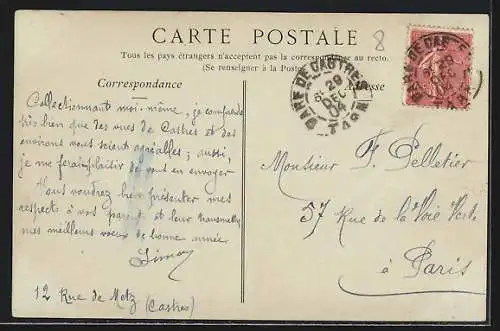 CARTE POSTALE
8
Tous les pays étrangers n'acceptent pas la correspondance au recto.
(Se renseigner à la Poste)
Correspondance
Adresse
GARE DE CASTRES
29
DEC
04
TARN
GARE DE CASTRES
29
DEC
Collectionnant moi-même, je comprends
très bien que des vues de Castres et des
environs vous soient agréables; aussi,
je me ferai plaisir de vous en envoyer
Vous voudrez bien présenter mes
respects à vos parents et leur transmettre
mes meilleurs voeux de bonne année
Simon
12 Rue de Metz (Castres)
Monsieur F. Pelletier
57 Rue de la Voie Verte
à Paris